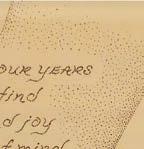 OUR YEARS
find
d joy
f mind